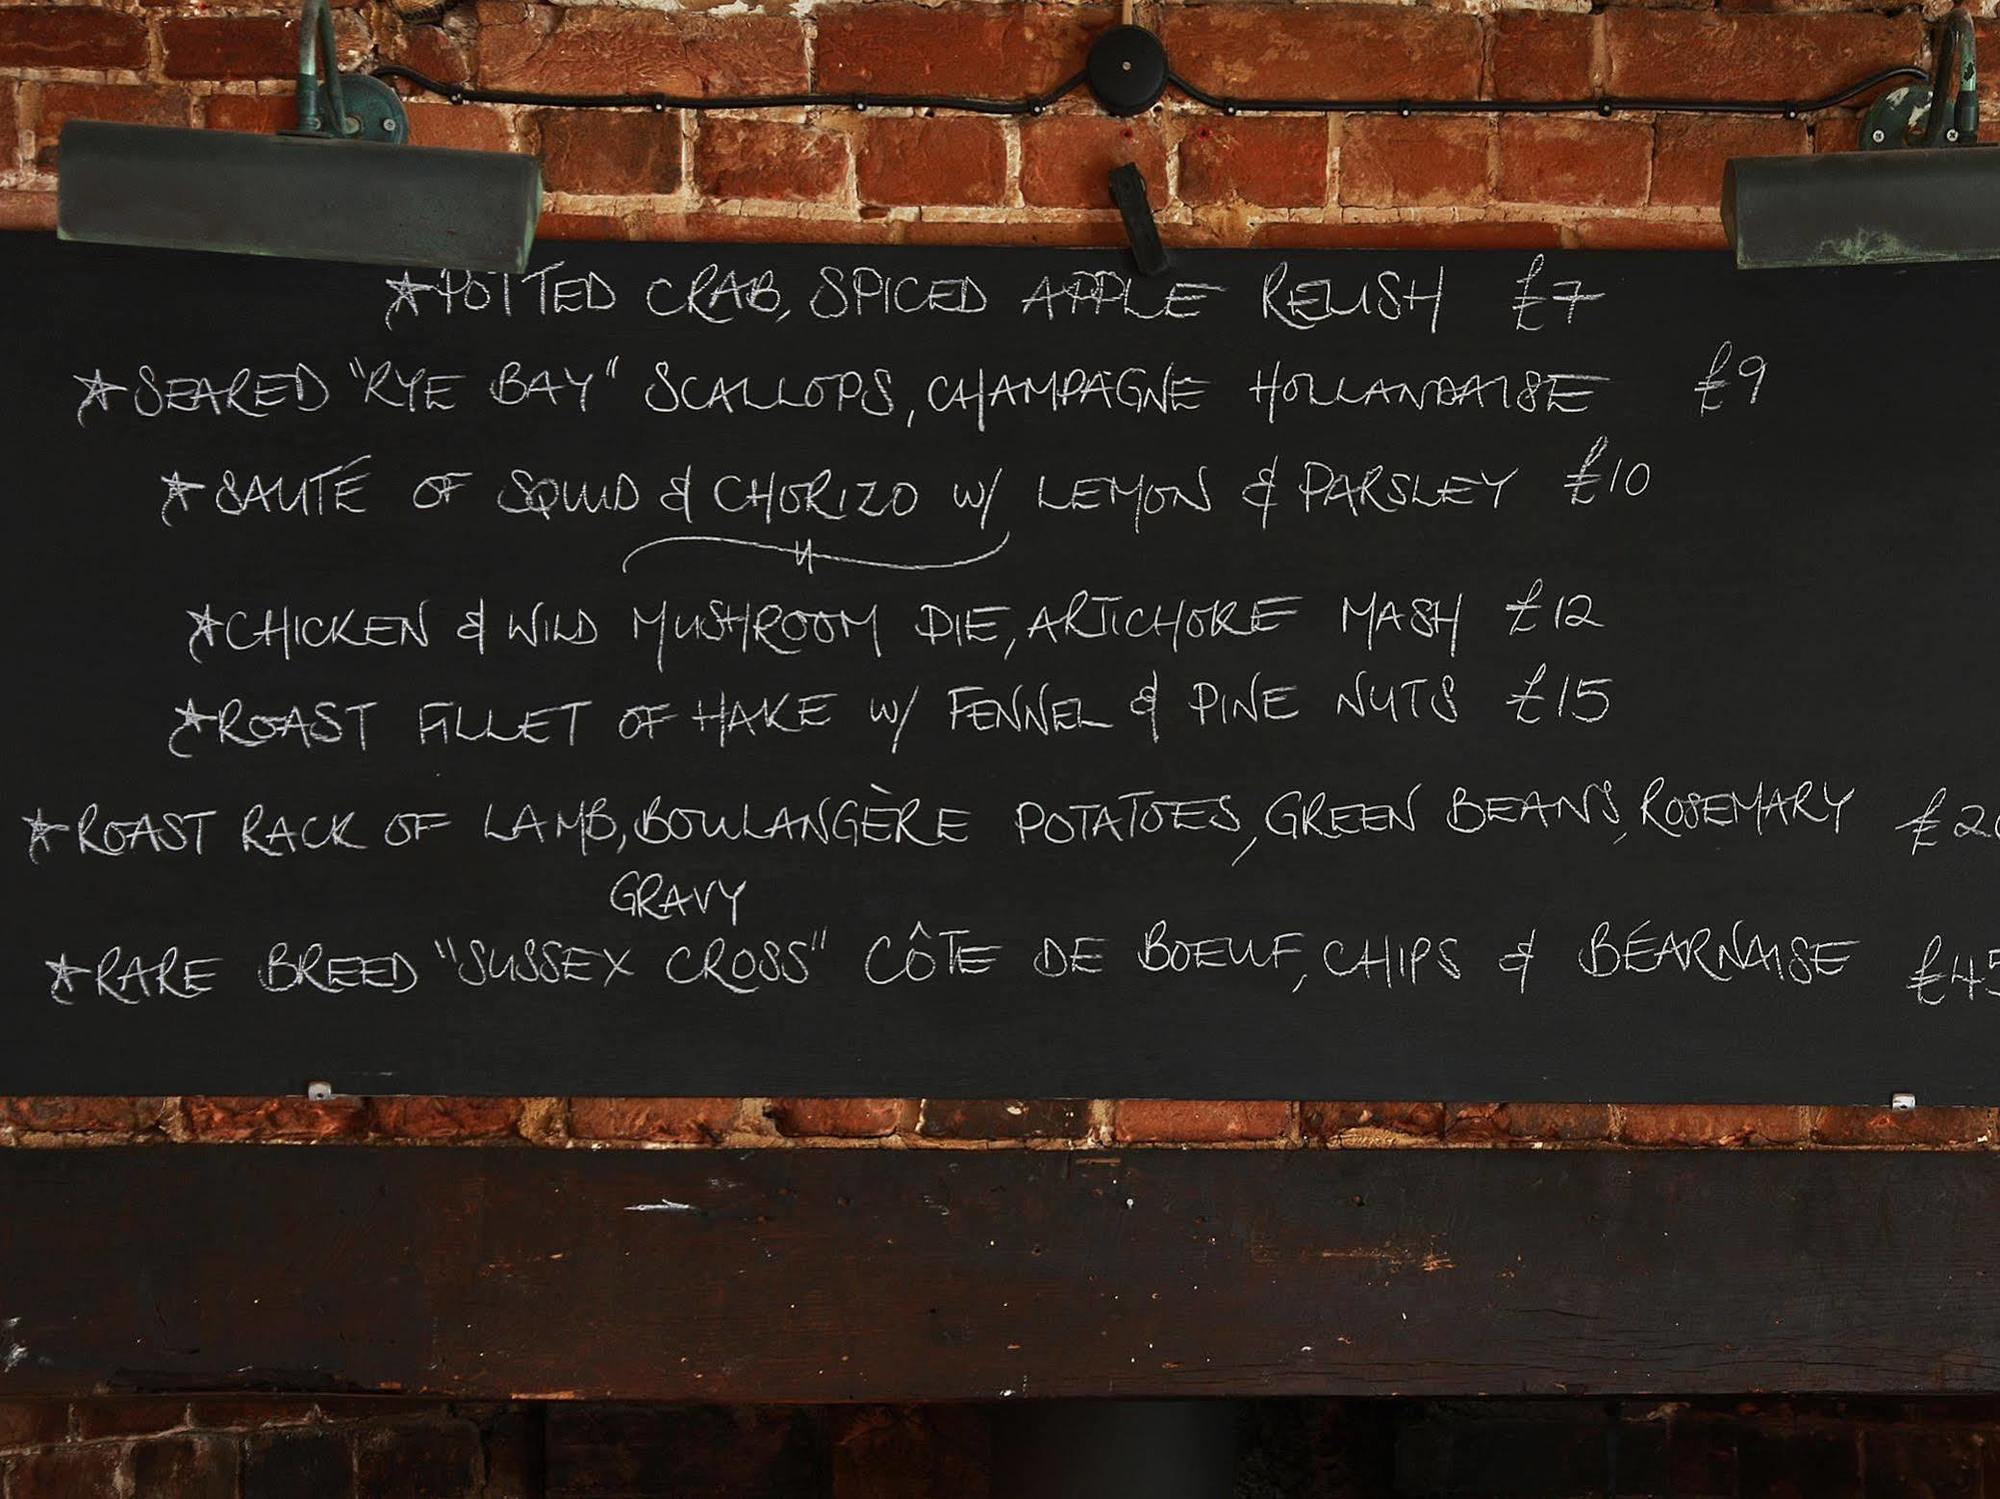 ★POTTED CRAB, SPICED APPLE RELISH £7
★SEARED "RYE BAY" SCALLOPS, CHAMPAGNE HOLLANDAISE £9
★SAUTÉ OF SQUID & CHORIZO W/ LEMON & PARSLEY £10
★CHICKEN & WILD MUSHROOM PIE, ARTICHOKE MASH £12
★ROAST FILLET OF HAKE W/ FENNEL & PINE NUTS £15
★ROAST RACK OF LAMB, BOULANGÈRE POTATOES, GREEN BEANS, ROSEMARY £20
GRAVY
★RARE BREED "SUSSEX CROSS" CÔTE DE BOEUF, CHIPS & BÉARNAISE £45